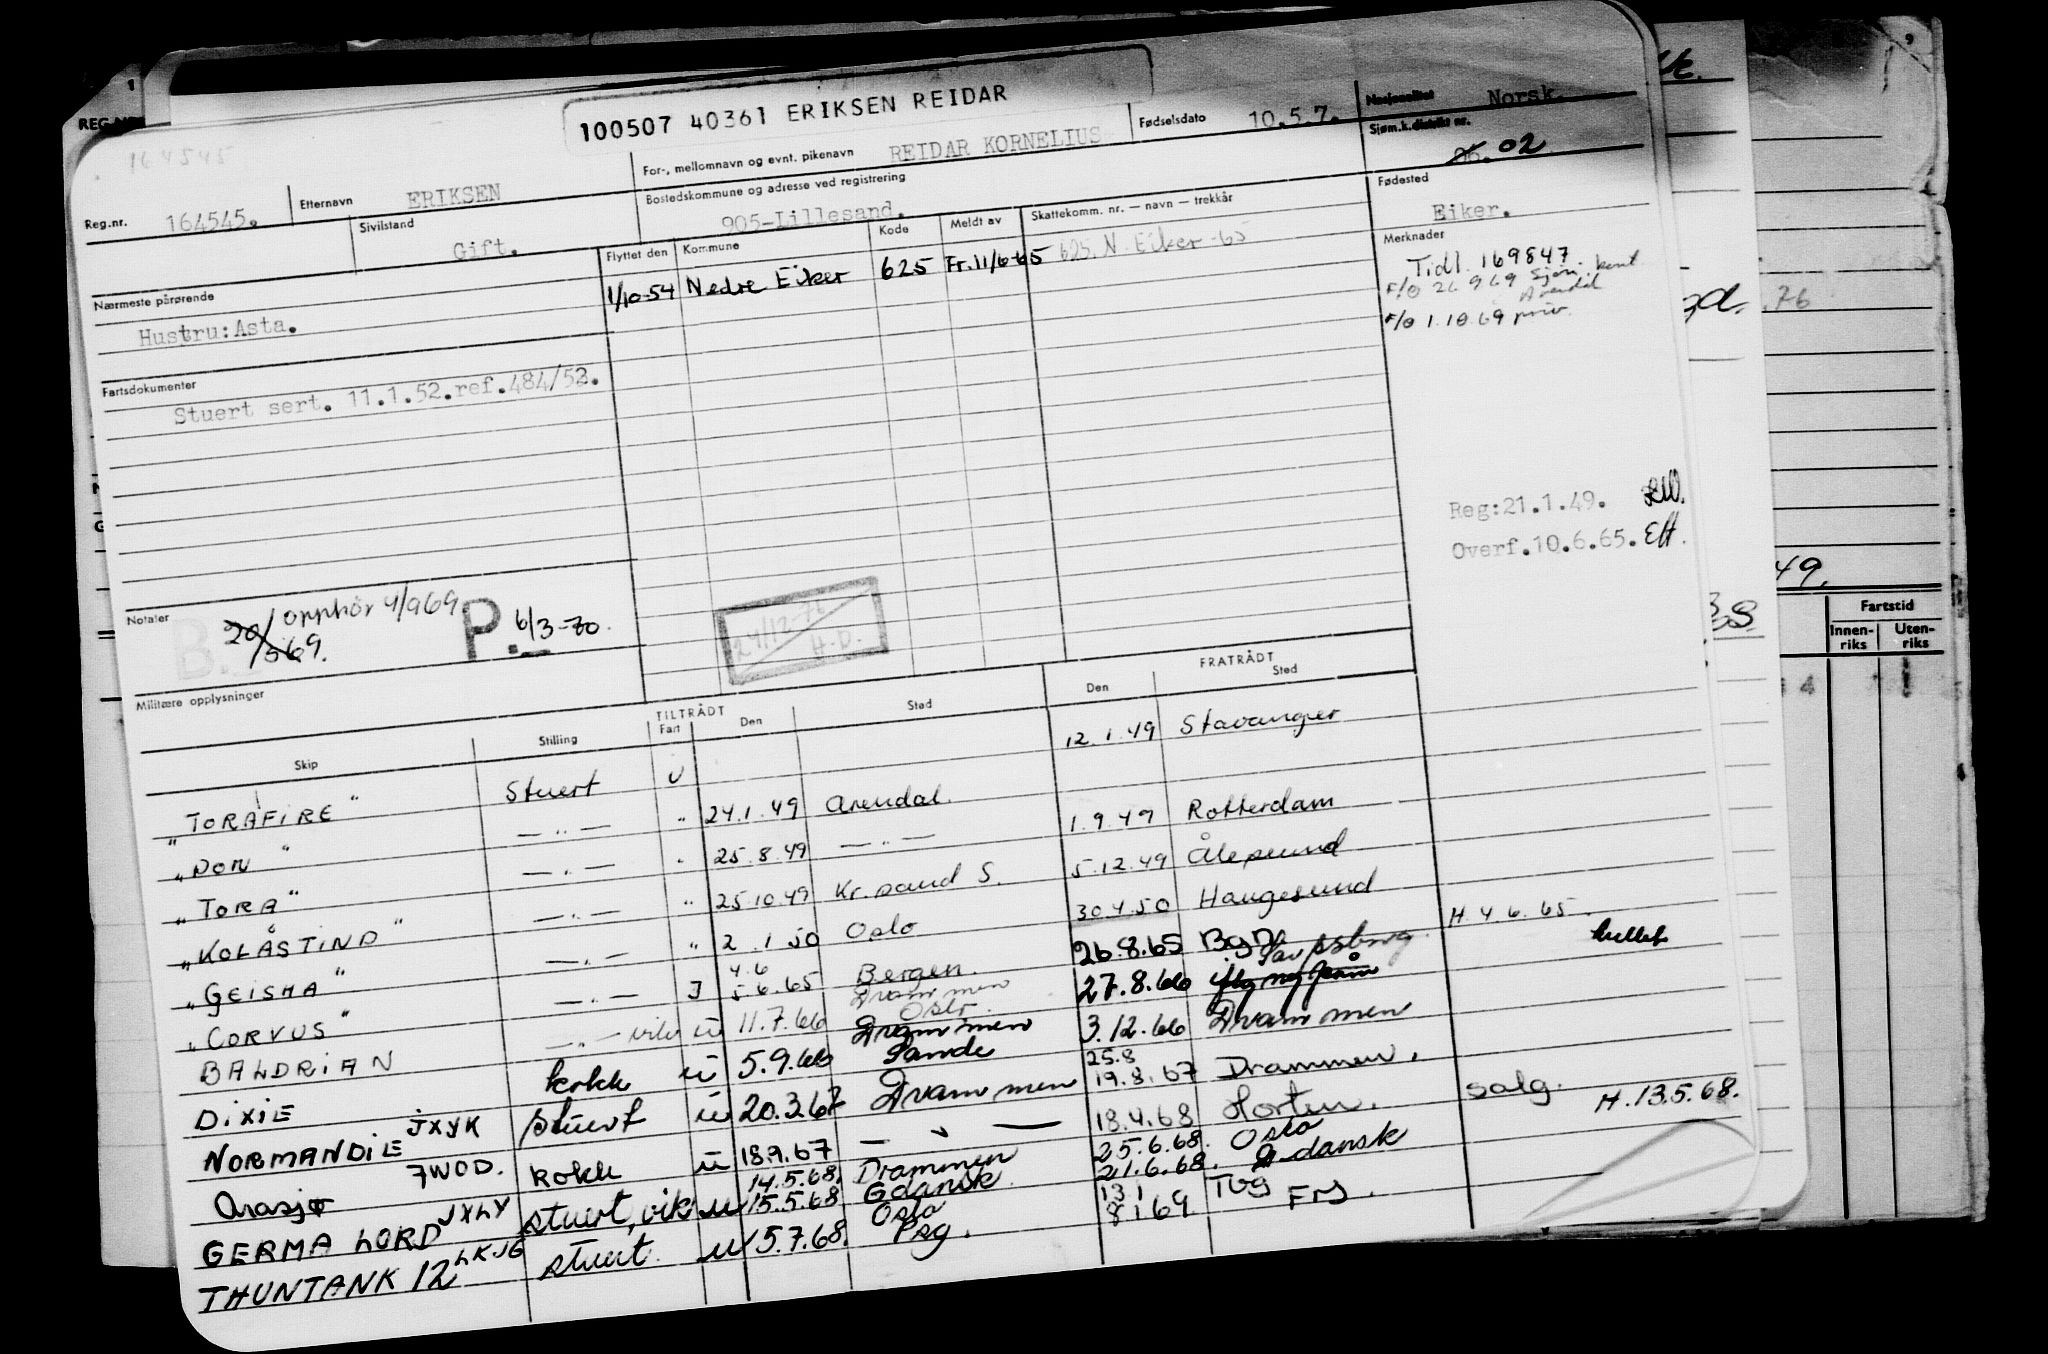 100507 40361 ERIKSEN REIDAR
164545
Reg.nr. 164545.
Etternavn ERIKSEN
For-, mellomnavn og evnt. pikenavn REIDAR KORNELIUS
Fødselsdato 10.5.7.
Nasjonalitet Norsk.
Sivilstand Gift.
Bostedskommune og adresse ved registrering 905-Lillesand.
Sjøm.k.distrikt nr. 02
Fødested Eiker.
Nærmeste pårørende
Hustru: Asta.
Flyttet den Kommune Kode Meldt av Skattekomm. nr. — navn — trekkår
1/10-54 Nedre Eiker 625 Fr. 11/6-65 625. N. Eiker-65
Merknader
Tidl. 169847
F/O 26 9 69 Sjøm. kont
Arendal
F/O 1.10.69 priv.
Fartsdokumenter
Stuert sert. 11.1.52.ref.484/52.
Reg:21.1.49.
Overf.10.6.65. EH.
Notater
B. 20/569. opphör 4/969 P. 6/3-70.
24/12-76 H.D.
Militære opplysninger
TILTRÅDT FRATRÅDT
Skip Stilling Fart Den Sted Den Sted
"TORAFIRE" Stuert U 12.1.49 Stavanger
"DON" — " — " 24.1.49 Arendal. 1.9.49 Rotterdam
"TORA" — " — " 25.8.49 — " — 5.12.49 Ålesund
"KOLÅSTIND" — " — " 25.10.49 Kr.sand S. 30.4.50 Haugesund
"GEISHA" — " — " 2.1.50 Oslo 26.8.65 Bgn H. 4.6.65.
"CORVUS" — " — I 4.6 5.6.65 Bergen. Drammen 27.8.66 Sarpsborg
BALDRIAN — " — vik u 11.7.66 Oslo Drammen 3.12.66 Drammen
DIXIE kokk u 5.9.66 Sande 25.8 19.8.67 Drammen.
NORMANDIE JXYK stuert u 20.3.67 Drammen 18.4.68 Horten. salg.
Arasjø JWOD. kokk u 18.9.67 — " — 25.6.68. Oslo H.13.5.68.
GERMA LORD JXLY stuert, vik u 14.5.68. 15.5.68 Drammen Gdansk 21.6.68. Gdansk
THUNTANK 12 LKJG stuert. u 5.7.68. Oslo Psg. 13 1 8 1 69 Tbg Frg.
REG.NR.
1
9
76
49.
Fartstid
Innenriks Utenriks